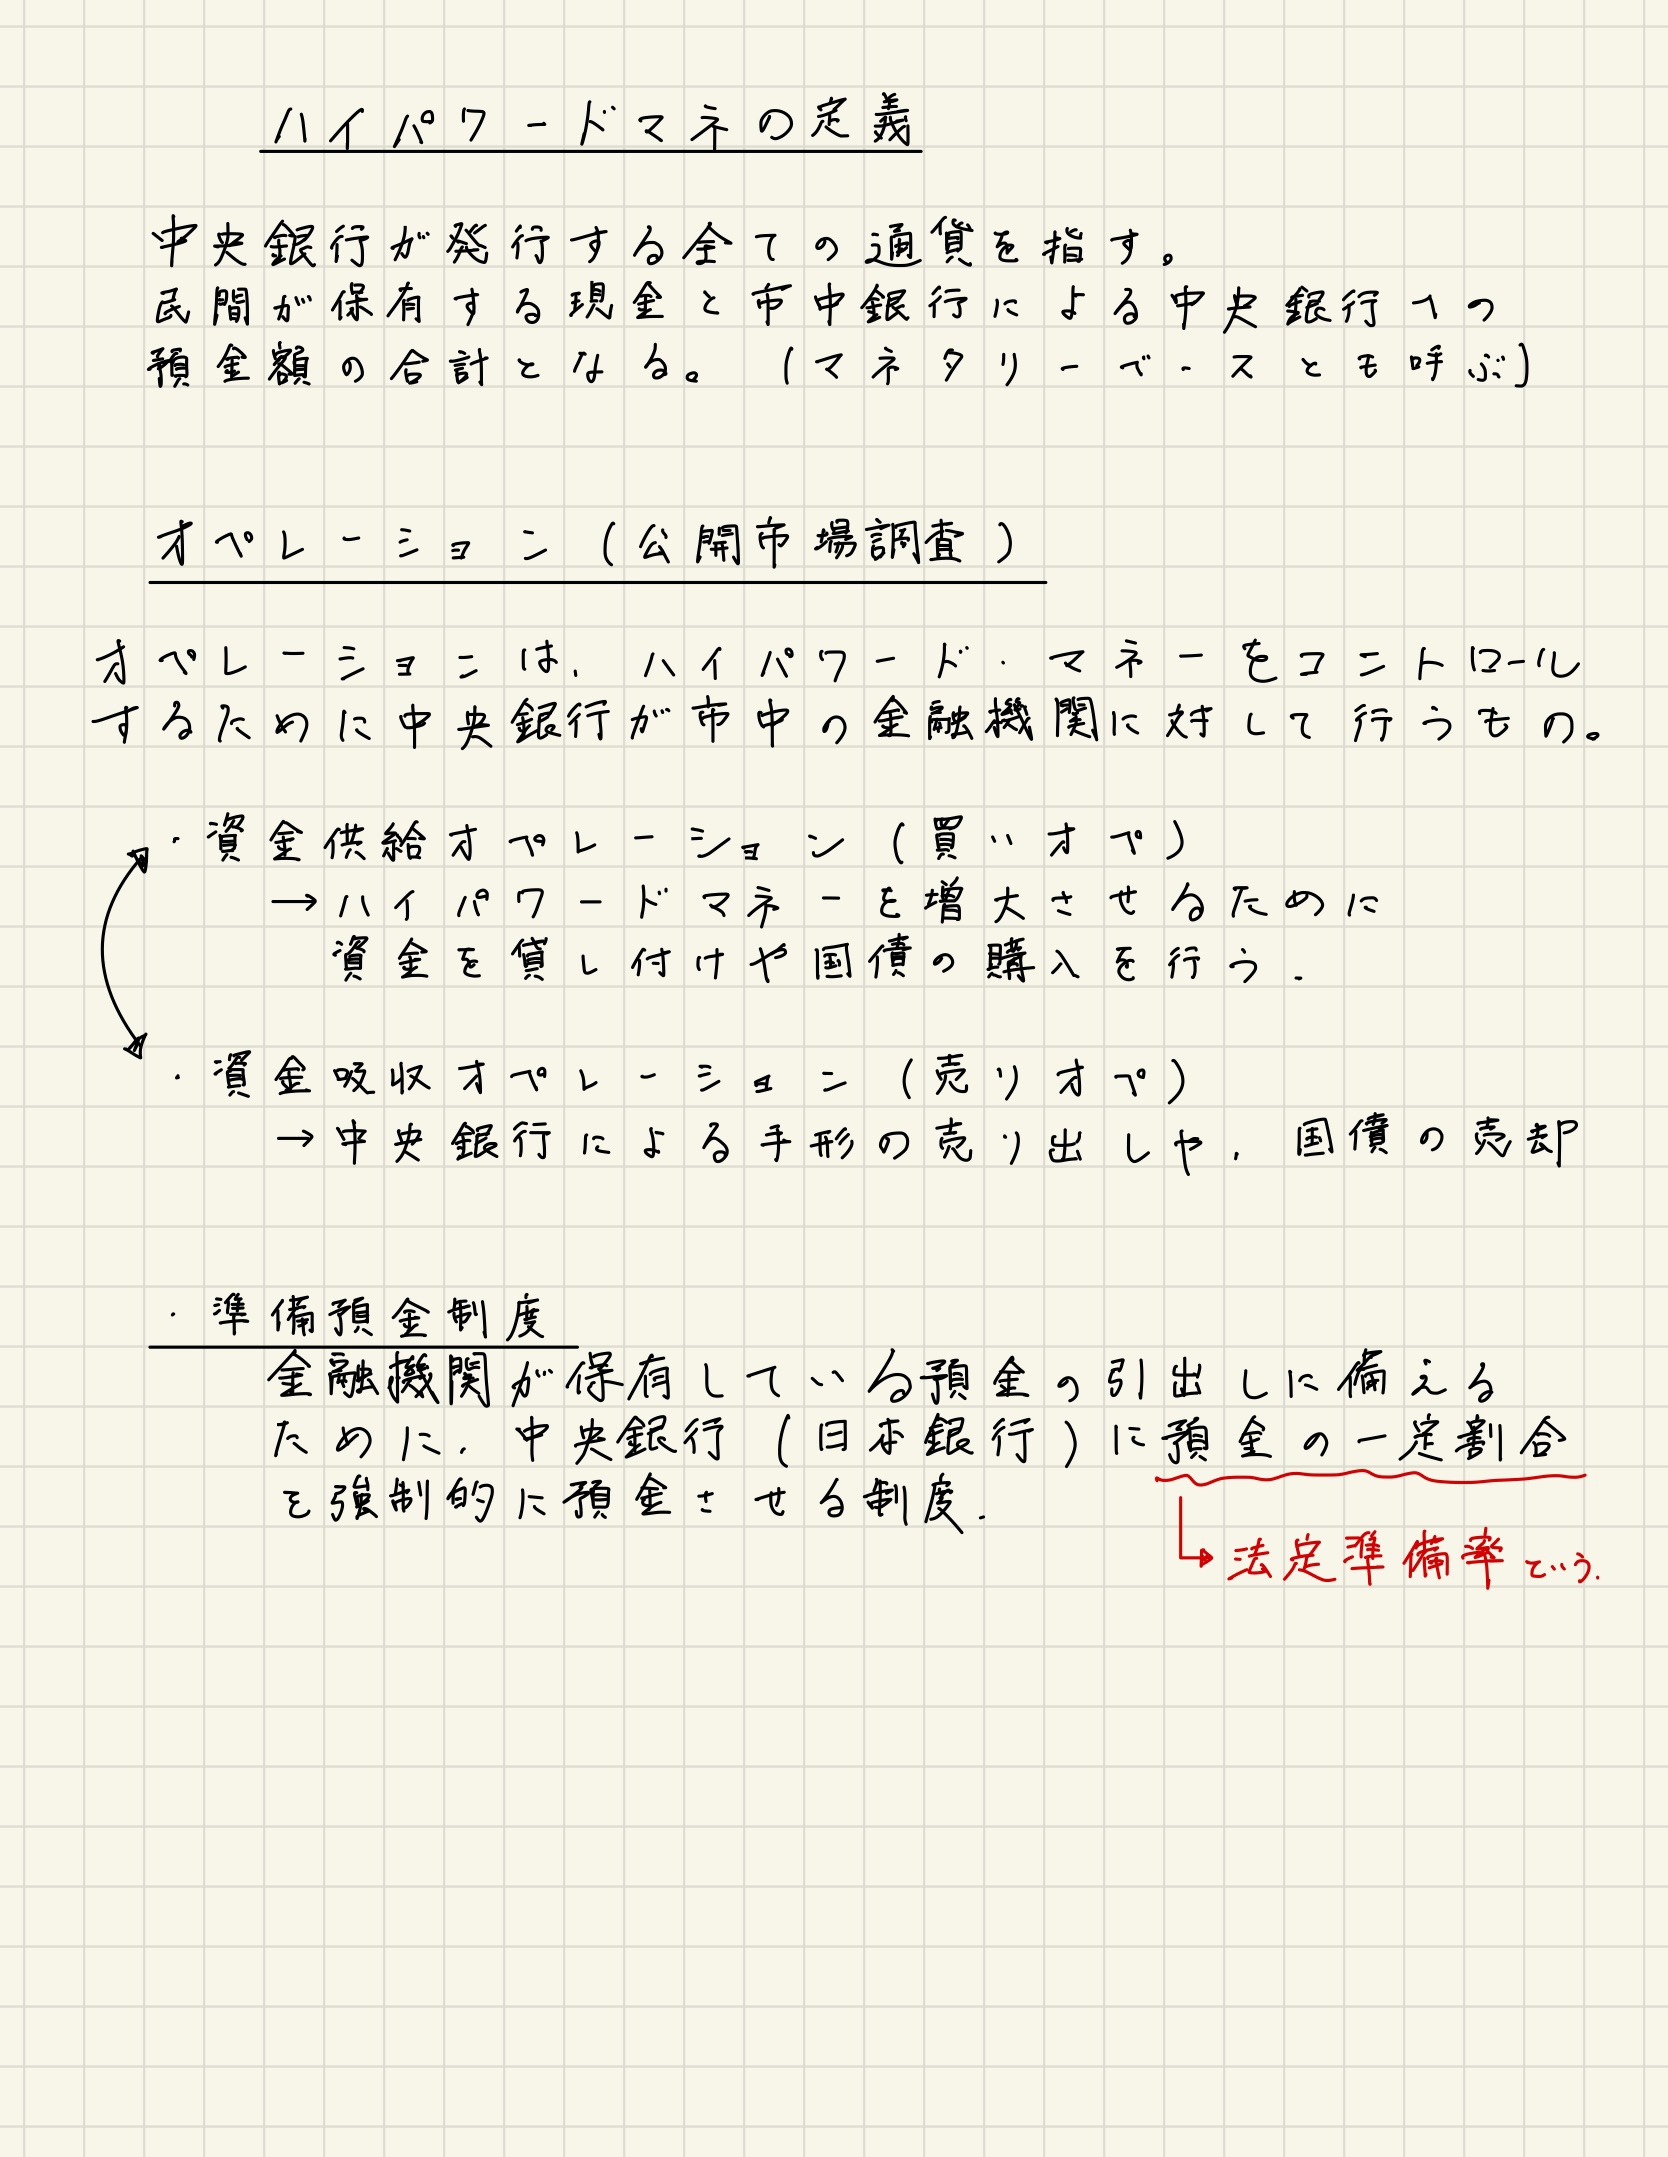 ハイパワードマネの定義
中央銀行が発行する全ての通貨を指す。
民間が保有する現金と市中銀行による中央銀行への
預金額の合計となる。(マネタリーベースとも呼ぶ)
オペレーション(公開市場調査)
オペレーションは、ハイパワード・マネーをコントロール
するために中央銀行が市中の金融機関に対して行うもの。
・資金供給オペレーション(買いオペ)
→ハイパワードマネーを増大させるために
資金を貸し付けや国債の購入を行う.
・資金吸収オペレーション(売りオペ)
→中央銀行による手形の売り出しや,国債の売却
・準備預金制度
金融機関が保有している預金の引出しに備える
ために,中央銀行(日本銀行)に預金の一定割合
を強制的に預金させる制度.
↳法定準備率という.